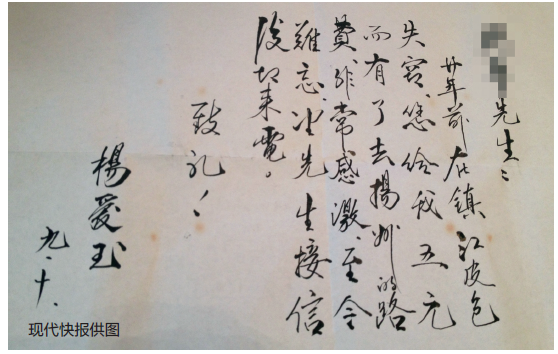 先生：
廿年前在镇江皮包
失窃，您给我五元
而有了去揚州的路
費，非常感激，至今
難忘，望先生接信
後切来電。
致
礼！
楊爱玉
九．十．
现代快报供图